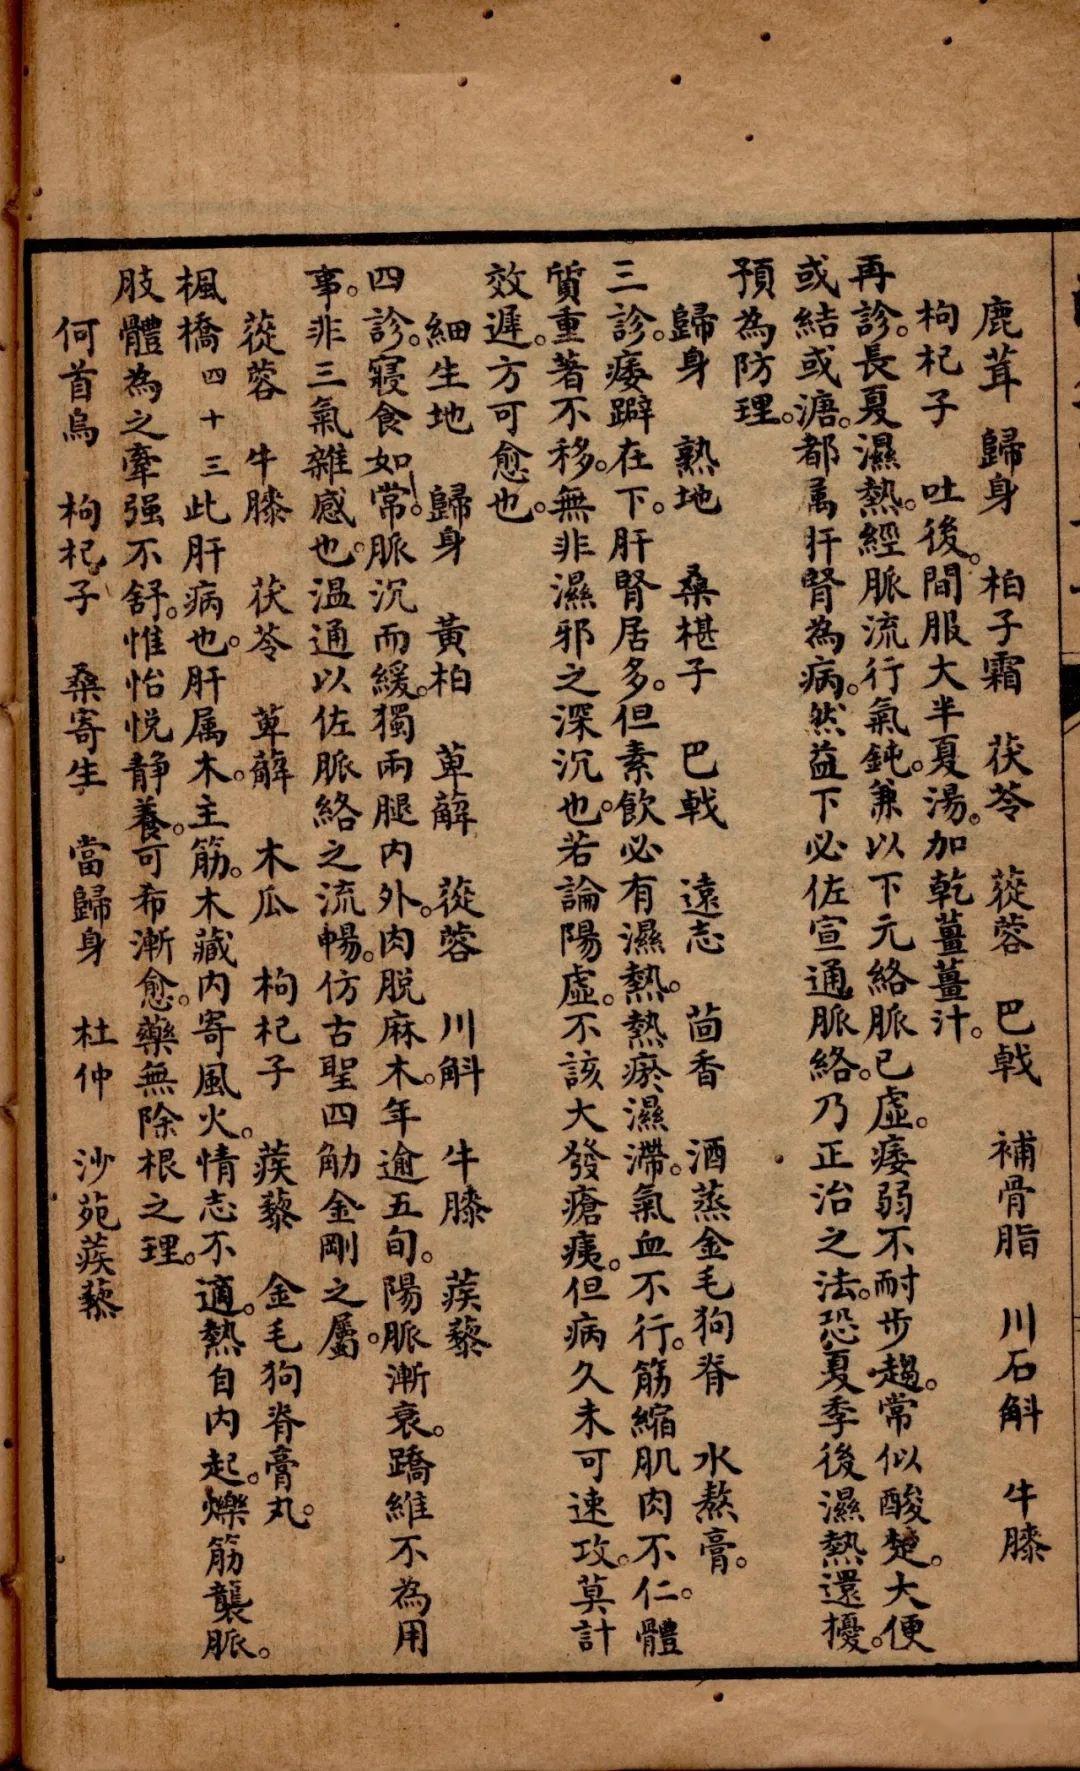 鹿茸　歸身　柏子霜　茯苓　蓯蓉　巴戟　補骨脂　川石斛　牛膝
枸杞子　吐後。間服大半夏湯。加乾薑薑汁。
再診。長夏濕熱。經脈流行氣鈍。兼以下元絡脈已虛。痿弱不耐步趨。常似酸楚。大便
或結或溏。都属肝腎為病。然益下必佐宣通脈絡。乃正治之法。恐夏季後濕熱還擾。
預為防理。
歸身　熟地　桑椹子　巴戟　遠志　茴香　酒蒸金毛狗脊　水熬膏。
三診。痿躃在下。肝腎居多。但素飲必有濕熱。熱瘀濕滯。氣血不行。筋縮肌肉不仁。體
質重著不移。無非濕邪之深沉也。若論陽虛。不該大發瘡痍。但病久未可速攻。莫計
效遲。方可愈也。
細生地　歸身　黃柏　萆薢　蓯蓉　川斛　牛膝　蒺藜
四診。寢食如常。脈沉而緩。獨兩腿內外。肉脫麻木。年逾五旬。陽脈漸衰。蹻維不為用
事。非三氣雜感也。温通以佐脈絡之流暢。仿古聖四觔金剛之屬。
蓯蓉　牛膝　茯苓　萆薢　木瓜　枸杞子　蒺藜　金毛狗脊膏丸。
楓橋四十三此肝病也。肝属木。主筋。木藏内寄風火。情志不適。熱自内起。爍筋襲脈。
肢體為之牽强不舒。惟怡悦靜養。可希漸愈。藥無除根之理。
何首烏　枸杞子　桑寄生　當歸身　杜仲　沙苑蒺藜